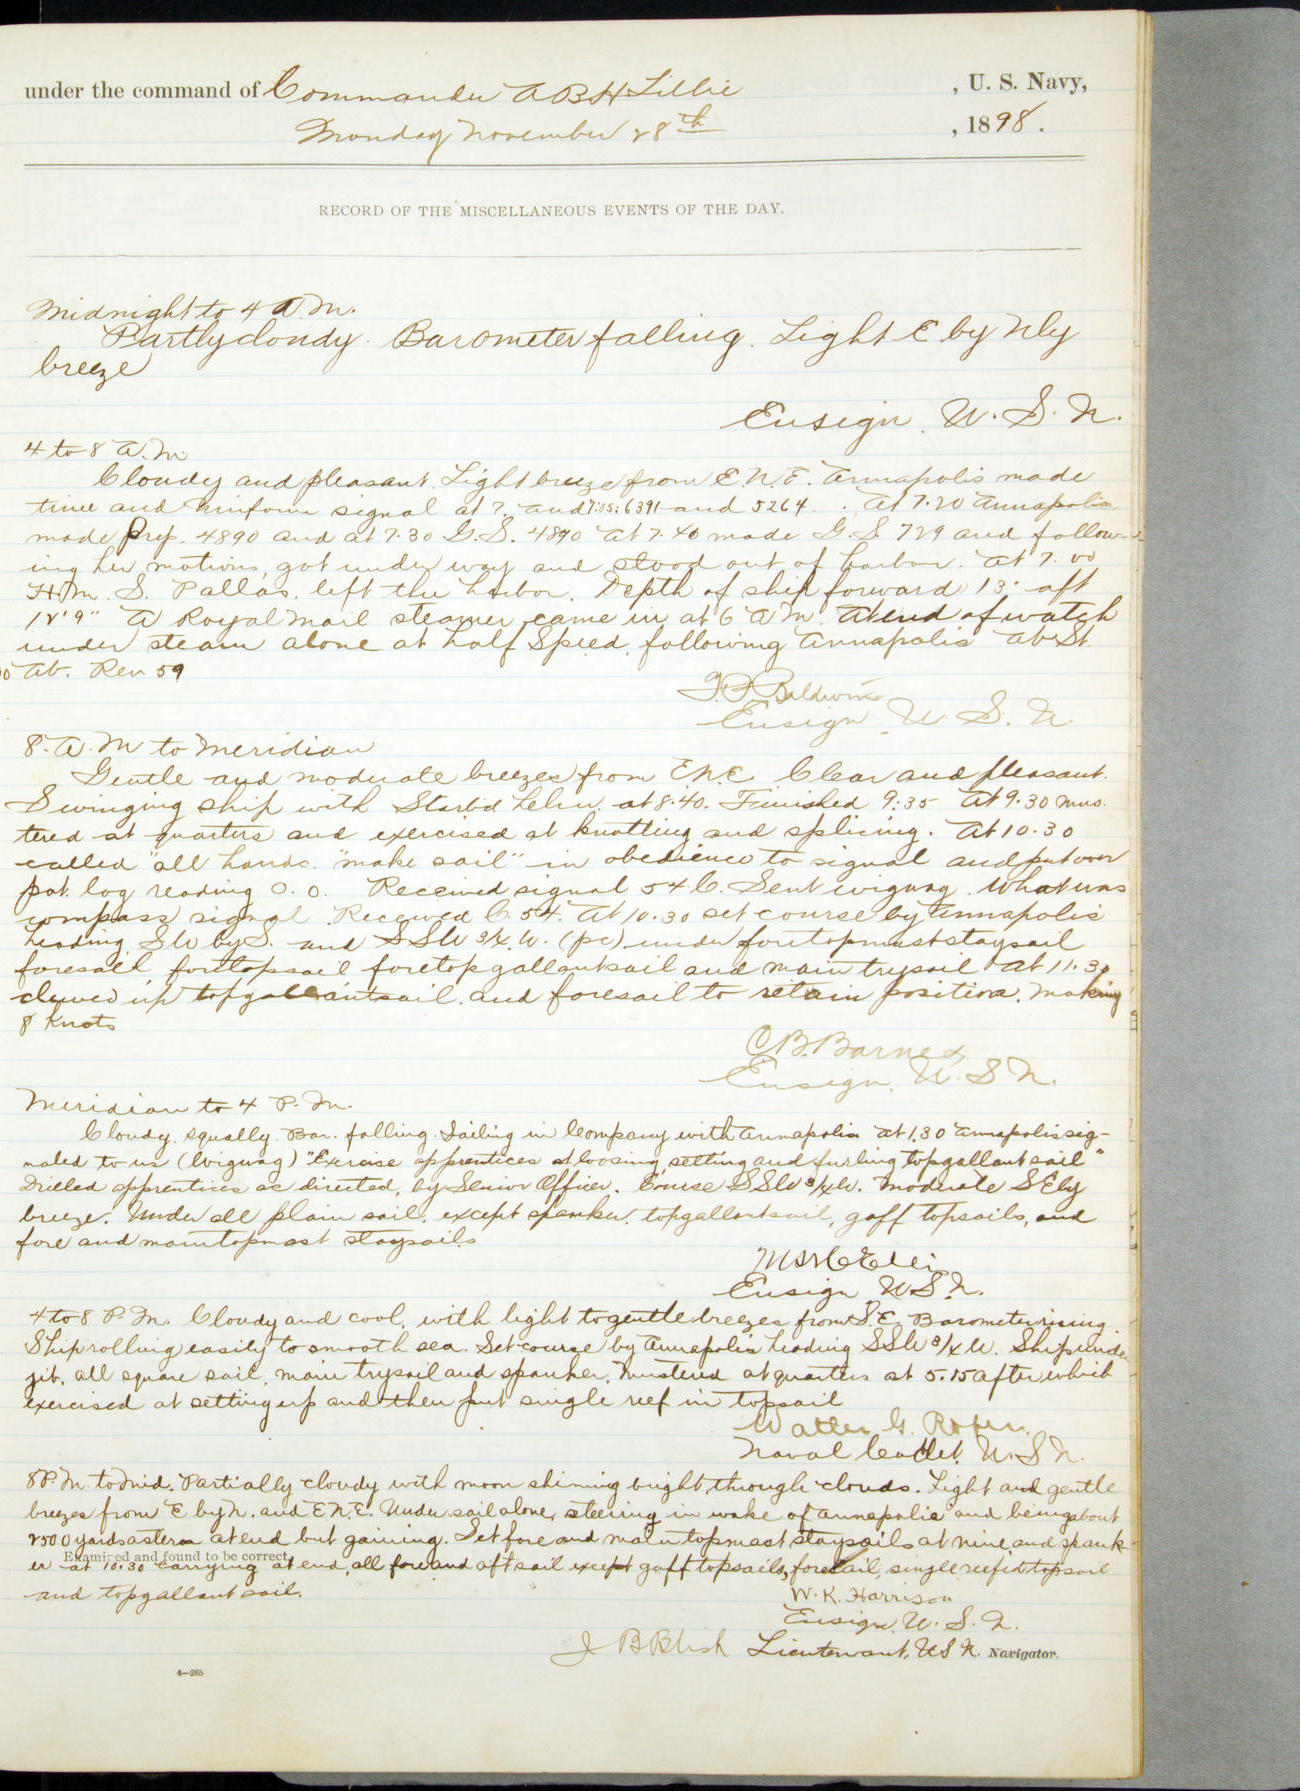 under the command of Commander A B H Lillie , U. S. Navy,
Monday November 28th , 1898.
RECORD OF THE MISCELLANEOUS EVENTS OF THE DAY.
Midnight to 4 A.M.
Partly cloudy. Barometer falling. Light E by N'ly
breeze
Ensign, U. S. N.
4 to 8 A.M
Cloudy and pleasant. Light breeze from E.N.E. Annapolis made
time and uniform signal at 7. and 7:05: 6391 and 5264. At 7.20 Annapolis
made Prep. 4890 and at 7.30 G.S. 4890 At 7.40 made G.S 729 and follow-
ing her motions, got under way and stood out of harbor. At 7.00
H.M. S. Pallas. left the harbor. Depth of ship forward 13' aft
12'9" A Royal Mail steamer came in at 6 A M. At end of watch
under steam alone at half speed, following Annapolis Av St.
Av. Rev 59
Baldwin
Ensign U. S. N
8. A. M to Meridian
Gentle and moderate breezes from E.N.E Clear and pleasant.
Swinging ship with Starb'd helm. at 8.40. Finished 9.35 At 9.30 mus-
tered at quarters and exercised at knotting and splicing. At 10.30
called "all hands. "make sail" in obedience to signal and put over
pat. log reading 0. 0. Received signal 54 C. Sent wigwag. What was
compass signal. Received C. 54. At 10.30 set course by Annapolis
heading SW by S. and SSW 3/4 W. (pc) under foretopmaststaysail
foresail foretopsail foretopgallantsail and main trysail At 11.30
clewed up topgallantsail. and foresail to retain position. Making
8 Knots
C B. Barnes
Ensign, U. S N.
Meridian to 4 P. M.
Cloudy squally Bar. falling Sailing in Company with Annapolis At 1.30 Annapolis sig-
naled to us (Wigwag) "Exercise apprentices at loosing, setting and furling topgallant sail"
Drilled apprentices as directed, by Senior Officer. Course SSW 3/4 W. Moderate SE'ly
breeze. Under all plain sail, except spanker, topgallantsail, gaff topsails, and
fore and maintopmast staysails
Ensign U.S.N.
4 to 8 P. M. Cloudy and cool, with light to gentle breezes from S.E. Barometer rising
Ship rolling easily to smooth sea. Set course by Annapolis heading SSW 3/4 W. Ship under
jib, all square sail, main trysail and spanker. Mustered at quarters at 5.15 after which
exercised at setting up and then put single reef in topsail
Walter G. Roper
Naval Cadet, U. S N.
8 P. M. to Mid. Partially cloudy with moon shining bright through clouds. Light and gentle
breezes from E by N. and E.N.E. Under sail alone, steering in wake of Annapolis and being about
2500 yards astern at end but gaining. Set fore and main topmast staysails at nine, and spank-
Examined and found to be correct.
er at 10.30 Carrying at end, all fore and aft sail except gaff topsails, foresail, single reefed topsail
and topgallant sail.
W. K. Harrison
Ensign, U. S. N.
J B Blish Lieutenant, U S N. Navigator.
4—265